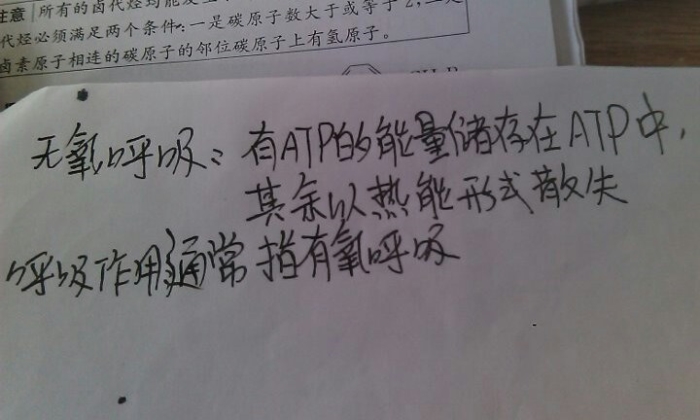 注意 所有的卤代烃均能发生
代烃必须满足两个条件:一是碳原子数大于或等于2,二是
卤素原子相连的碳原子的邻位碳原子上有氢原子。
无氧呼吸:有ATP的能量储存在ATP中,
其余以热能形式散失
呼吸作用通常指有氧呼吸